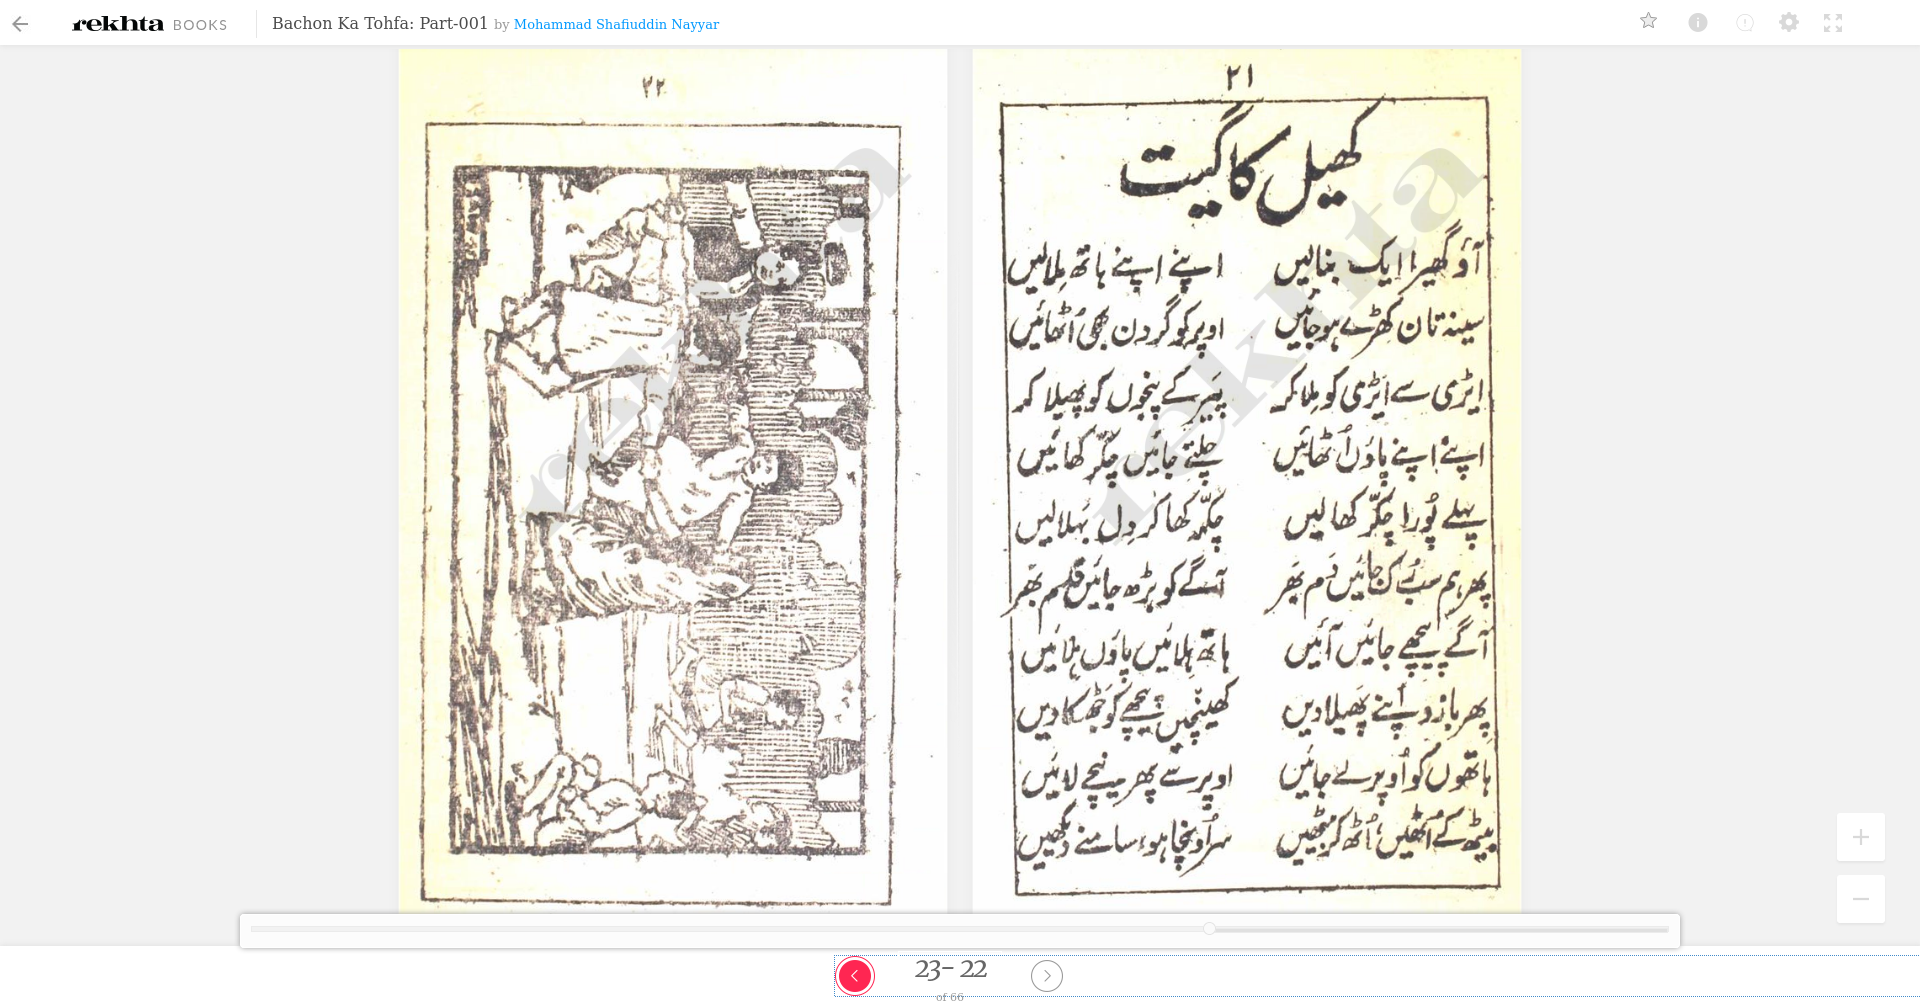 rekhta BOOKS
Bachon Ka Tohfa: Part-001 by Mohammad Shafiuddin Nayyar
۲۱
کھیل کا گیت
آؤ گھیرا ایک بنالیں اپنے اپنے ہاتھ مِلالیں
سینہ تان کھڑے ہو جائیں اوپر کو گردن بھی اُٹھائیں
ایڑی سے ایڑی کو مِلا کر پَیر کے پنجوں کو پھیلا کر
اپنے اپنے پاؤں اُٹھائیں چلتے جائیں چکّر کھائیں
پہلے پُورا چکّر کھا لیں چکّر کھا کر دِل بَہلالیں
پھر ہم سب رُک جائیں دَم بھَر آگے کو بڑھ جائیں قدم بھَر
آگے پیچھے جائیں آئیں ہاتھ ہِلائیں پاؤں ہِلائیں
پھر بازو اپنے پھَیلا دیں کھینچیں پیچھے کو جھٹکا دیں
ہاتھوں کو اُوپر لے جائیں اوپر سے پھر نیچے لائیں
بیٹھ کے اُٹھیں، اُٹھ کر بیٹھیں سر اُونچا ہو، سامنے دیکھیں
rekhta
۲۲
rekhta
23- 22
of 66